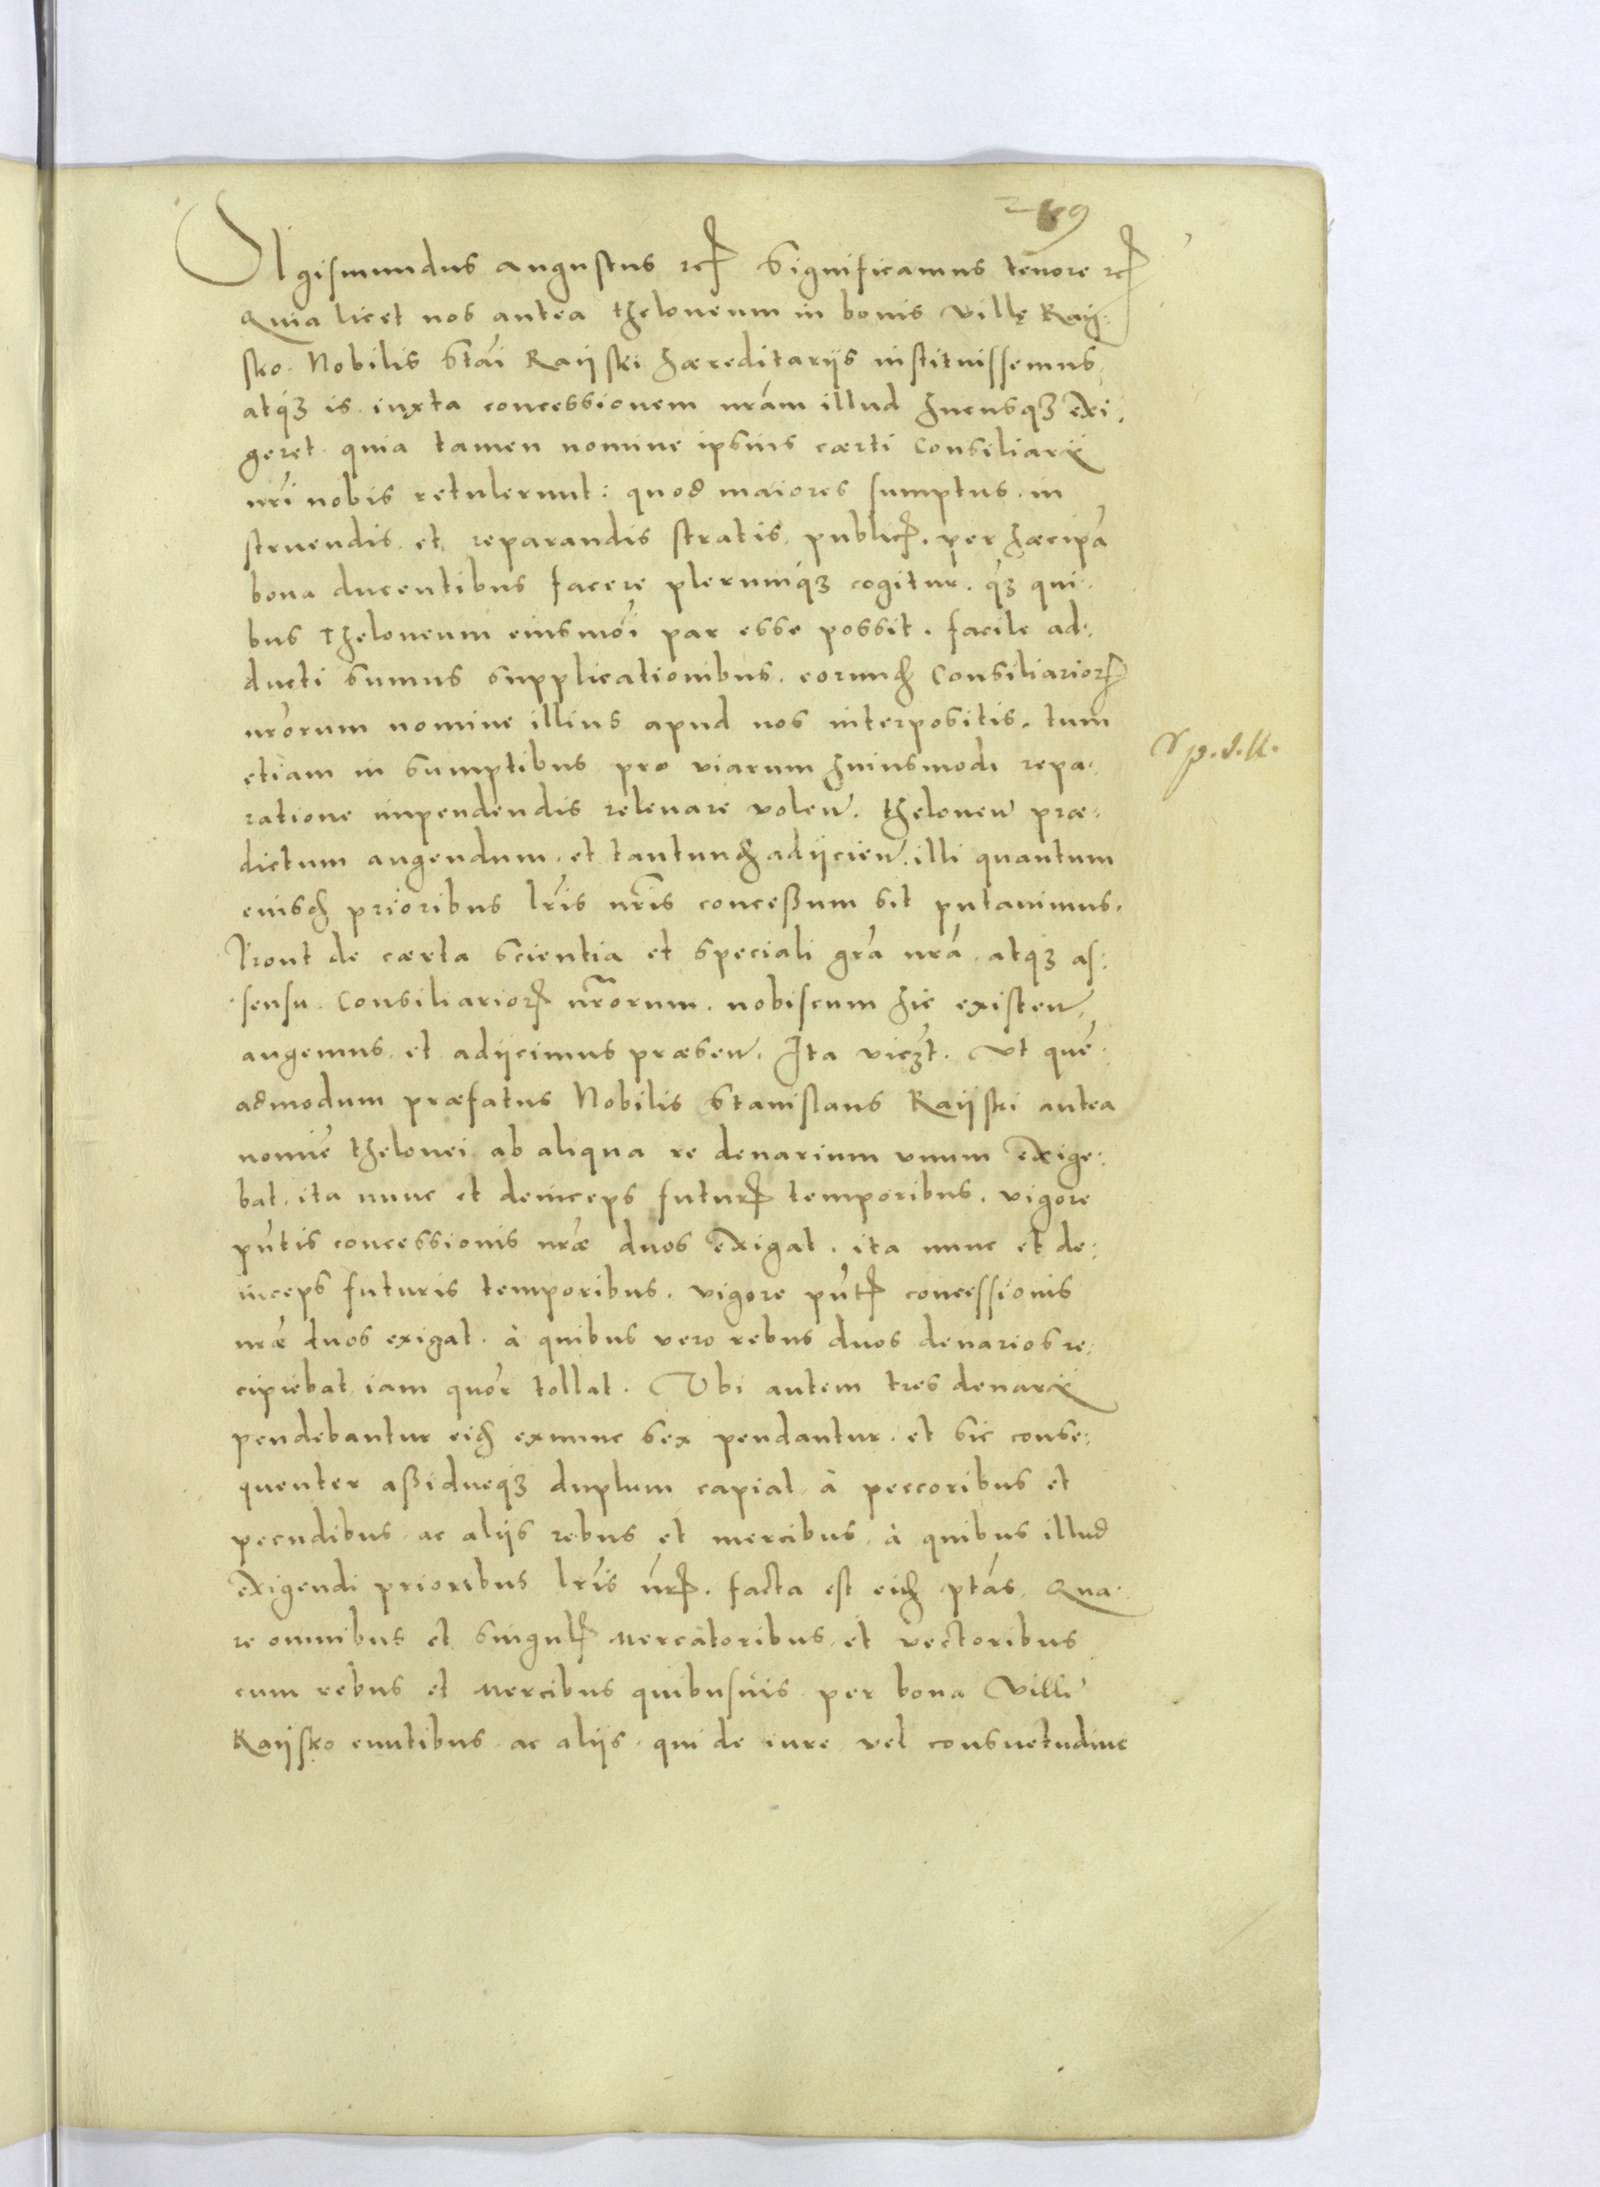 Sigismundus Augustus etc. Significamus tenore etc.
Quia licet nos antea theloneum in bonis villę Raÿ:
sko. Nobilis Stāi Raÿski hæreditarijs instituissemus,
atq₃ is iuxta concessionem nrām illud hucusq₃ exi:
geret. quia tamen nomine ipsius cærti Consiliarÿ
nrī nobis retulerunt: quod maiores sumptus. in
struendis et reparandis stratis publicis. per hæc ipsa
bona ducentibus facere plerumq₃ cogitur. q₃ qui:
bus theloneum eiusmōi par esse possit. facile ad:
ducti sumus supplicationibus. eorund Consiliarior
nrōrum nomine illius apud nos interpositis. tum
etiam in sumptibus pro viarum huiusmodi repa:
ratione impendendis releuare volen. thelonen præ:
dictum augendum. et tantund adijcien. illi quantum
eiusd prioribus lrīs nrīs conceßum sit putauimus.
Prout de cærta scientia et speciali grā nrā. atq₃ as:
sensu. Consiliarior nrōrum. nobiscum hic existen.
augemus. et adijcimus præsen. Ita vicz̄t. Vt quē:
admodum præfatus Nobilis Stanislaus Raÿski antea
nomīe thelonei ab aliqua re denarium vnum exige:
bat. ita nunc et deinceps futuris temporibus. vigore
pn̄tis concessionis nrǣ duos exigat. ita nunc et de:
inceps futuris temporibus. vigore pn̄tis concessionis
nrǣ duos exigat. à quibus vero rebus duos denarios re:
cipiebat iam quōr tollat. Vbi autem tres denarÿ
pendebantur eid exnunc sex pendantur. et sic conse:
quenter aßidueq₃ duplum capiat à peccoribus et
pecudibus ac alijs rebus et mercibus. à quibus illud
exigendi prioribus lrīs nrīs. facta est eid ptās. Qua:
re omnibus et singulis Mercatoribus et vectoribus
cum rebus et Mercibus quibusuis per bona Villæ
Raÿsko euntibus ac alijs. qui de iure vel consuetudine